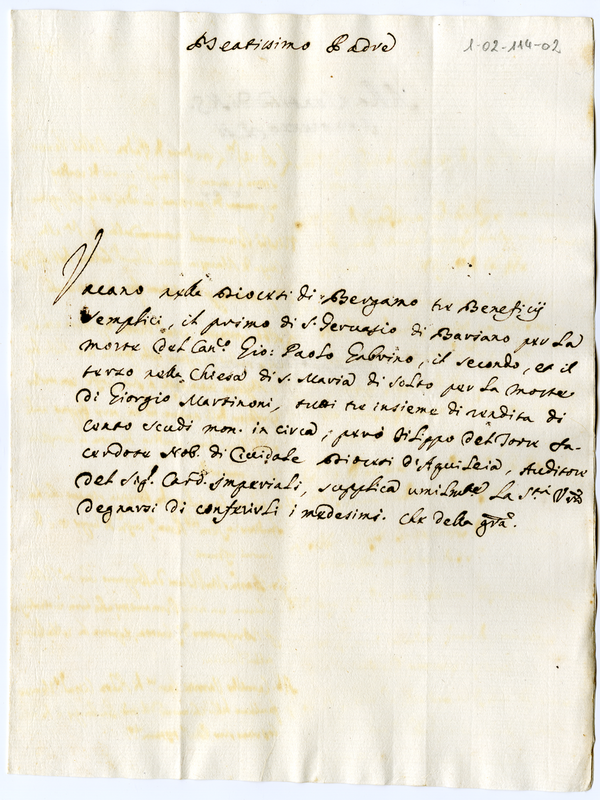 Beatissimo Padre
1-02-114-02
Vacano nella Diocesi di Bergamo tre Beneficij
semplici, il primo di S. Gervasio di Bariano per la
morte del Can.co Gio: Paolo Gabrino, il secondo, et il
terzo nella Chiesa di S. Maria di Solto per la morte
di Giorgio Martinoni, tutti tre insieme di rendita di
cento scudi mon. in circa; però Filippo del Torre Sa-
cerdote Nob. di Cividale Diocesi d'Aquileia, Auditore
del Sig.r Card. Imperiali, supplica umilmte la S.ta Vra
degnarsi di conferirli i medesimi. Che della gra.